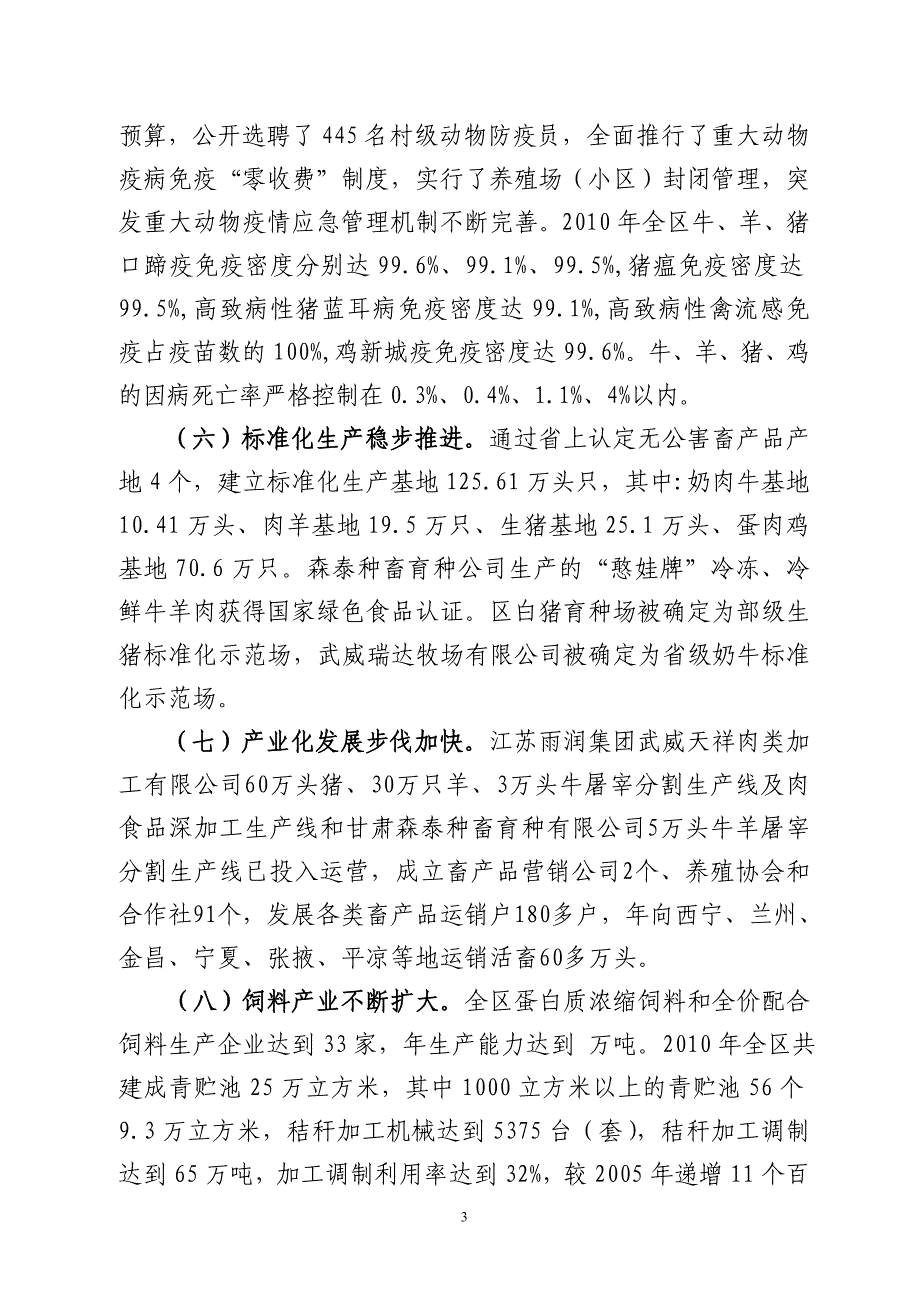 预算，公开选聘了 445 名村级动物防疫员，全面推行了重大动物
疫病免疫“零收费”制度，实行了养殖场（小区）封闭管理，突
发重大动物疫情应急管理机制不断完善。2010 年全区牛、羊、猪
口蹄疫免疫密度分别达 99.6%、99.1%、99.5%,猪瘟免疫密度达
99.5%,高致病性猪蓝耳病免疫密度达 99.1%,高致病性禽流感免
疫占疫苗数的 100%,鸡新城疫免疫密度达 99.6%。牛、羊、猪、鸡
的因病死亡率严格控制在 0.3%、0.4%、1.1%、4%以内。
（六）标准化生产稳步推进。通过省上认定无公害畜产品产
地 4 个，建立标准化生产基地 125.61 万头只，其中:奶肉牛基地
10.41 万头、肉羊基地 19.5 万只、生猪基地 25.1 万头、蛋肉鸡
基地 70.6 万只。森泰种畜育种公司生产的“憨娃牌”冷冻、冷
鲜牛羊肉获得国家绿色食品认证。区白猪育种场被确定为部级生
猪标准化示范场，武威瑞达牧场有限公司被确定为省级奶牛标准
化示范场。
（七）产业化发展步伐加快。江苏雨润集团武威天祥肉类加
工有限公司60万头猪、30万只羊、3万头牛屠宰分割生产线及肉
食品深加工生产线和甘肃森泰种畜育种有限公司5万头牛羊屠宰
分割生产线已投入运营，成立畜产品营销公司2个、养殖协会和
合作社91个，发展各类畜产品运销户180多户，年向西宁、兰州、
金昌、宁夏、张掖、平凉等地运销活畜60多万头。
（八）饲料产业不断扩大。全区蛋白质浓缩饲料和全价配合
饲料生产企业达到 33 家，年生产能力达到 万吨。2010 年全区共
建成青贮池 25 万立方米，其中 1000 立方米以上的青贮池 56 个
9.3 万立方米，秸秆加工机械达到 5375 台（套），秸秆加工调制
达到 65 万吨，加工调制利用率达到 32%，较 2005 年递增 11 个百
3